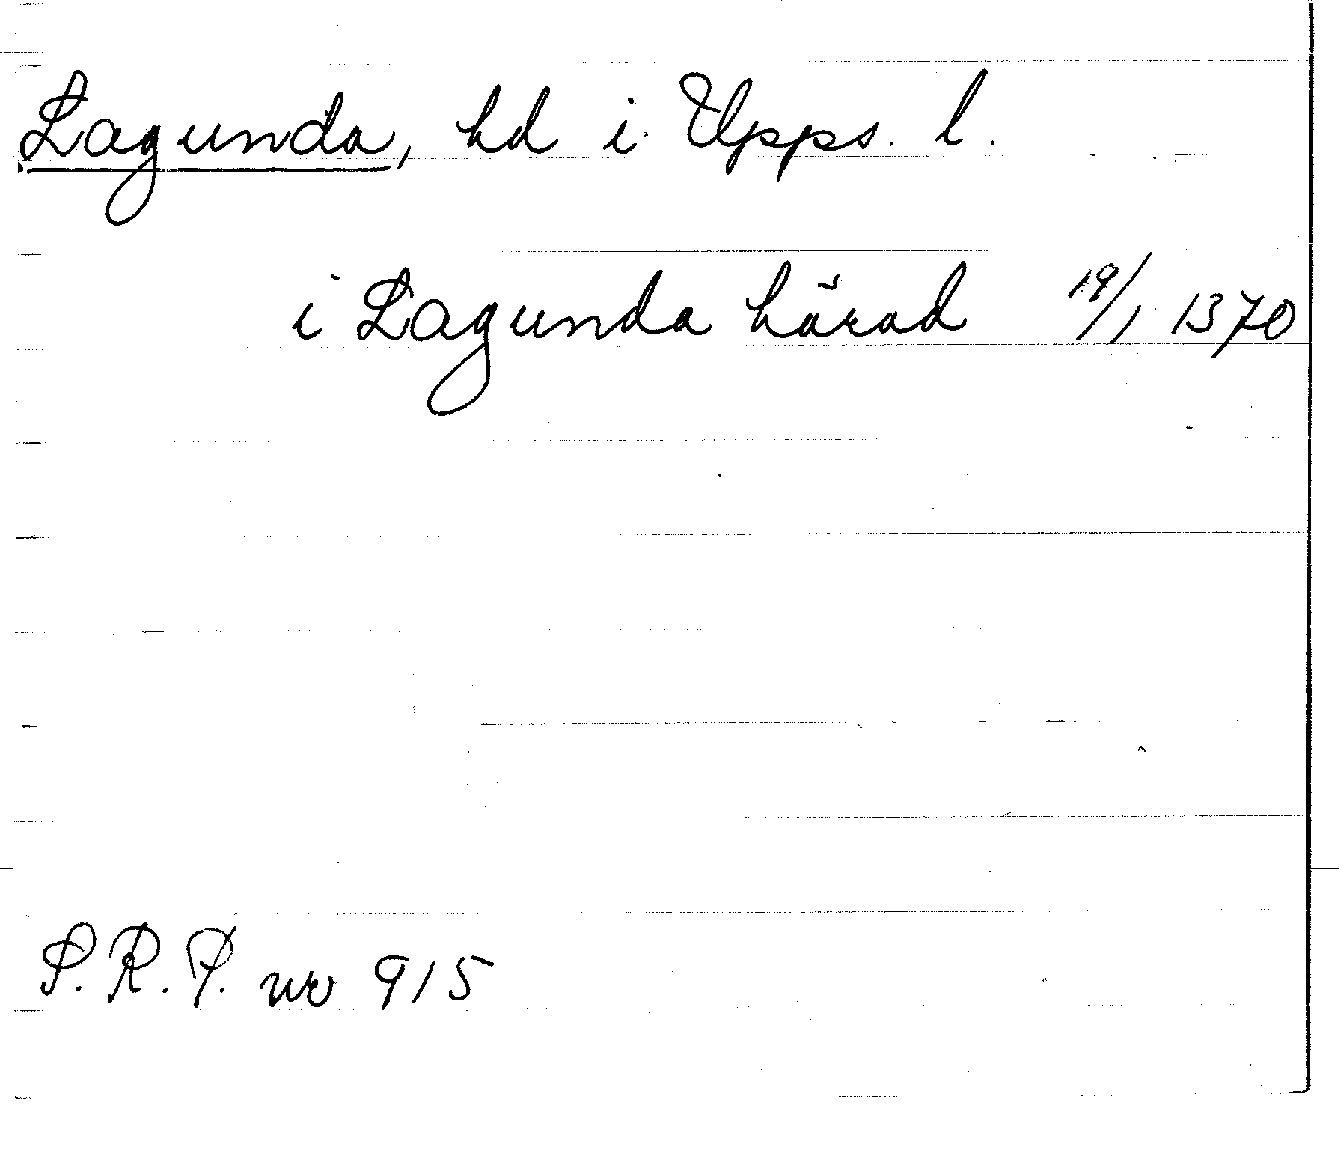 Lagunda, hd i Upps. l.
i Lagunda härad 19/1 1370
S.R.P. nr 915